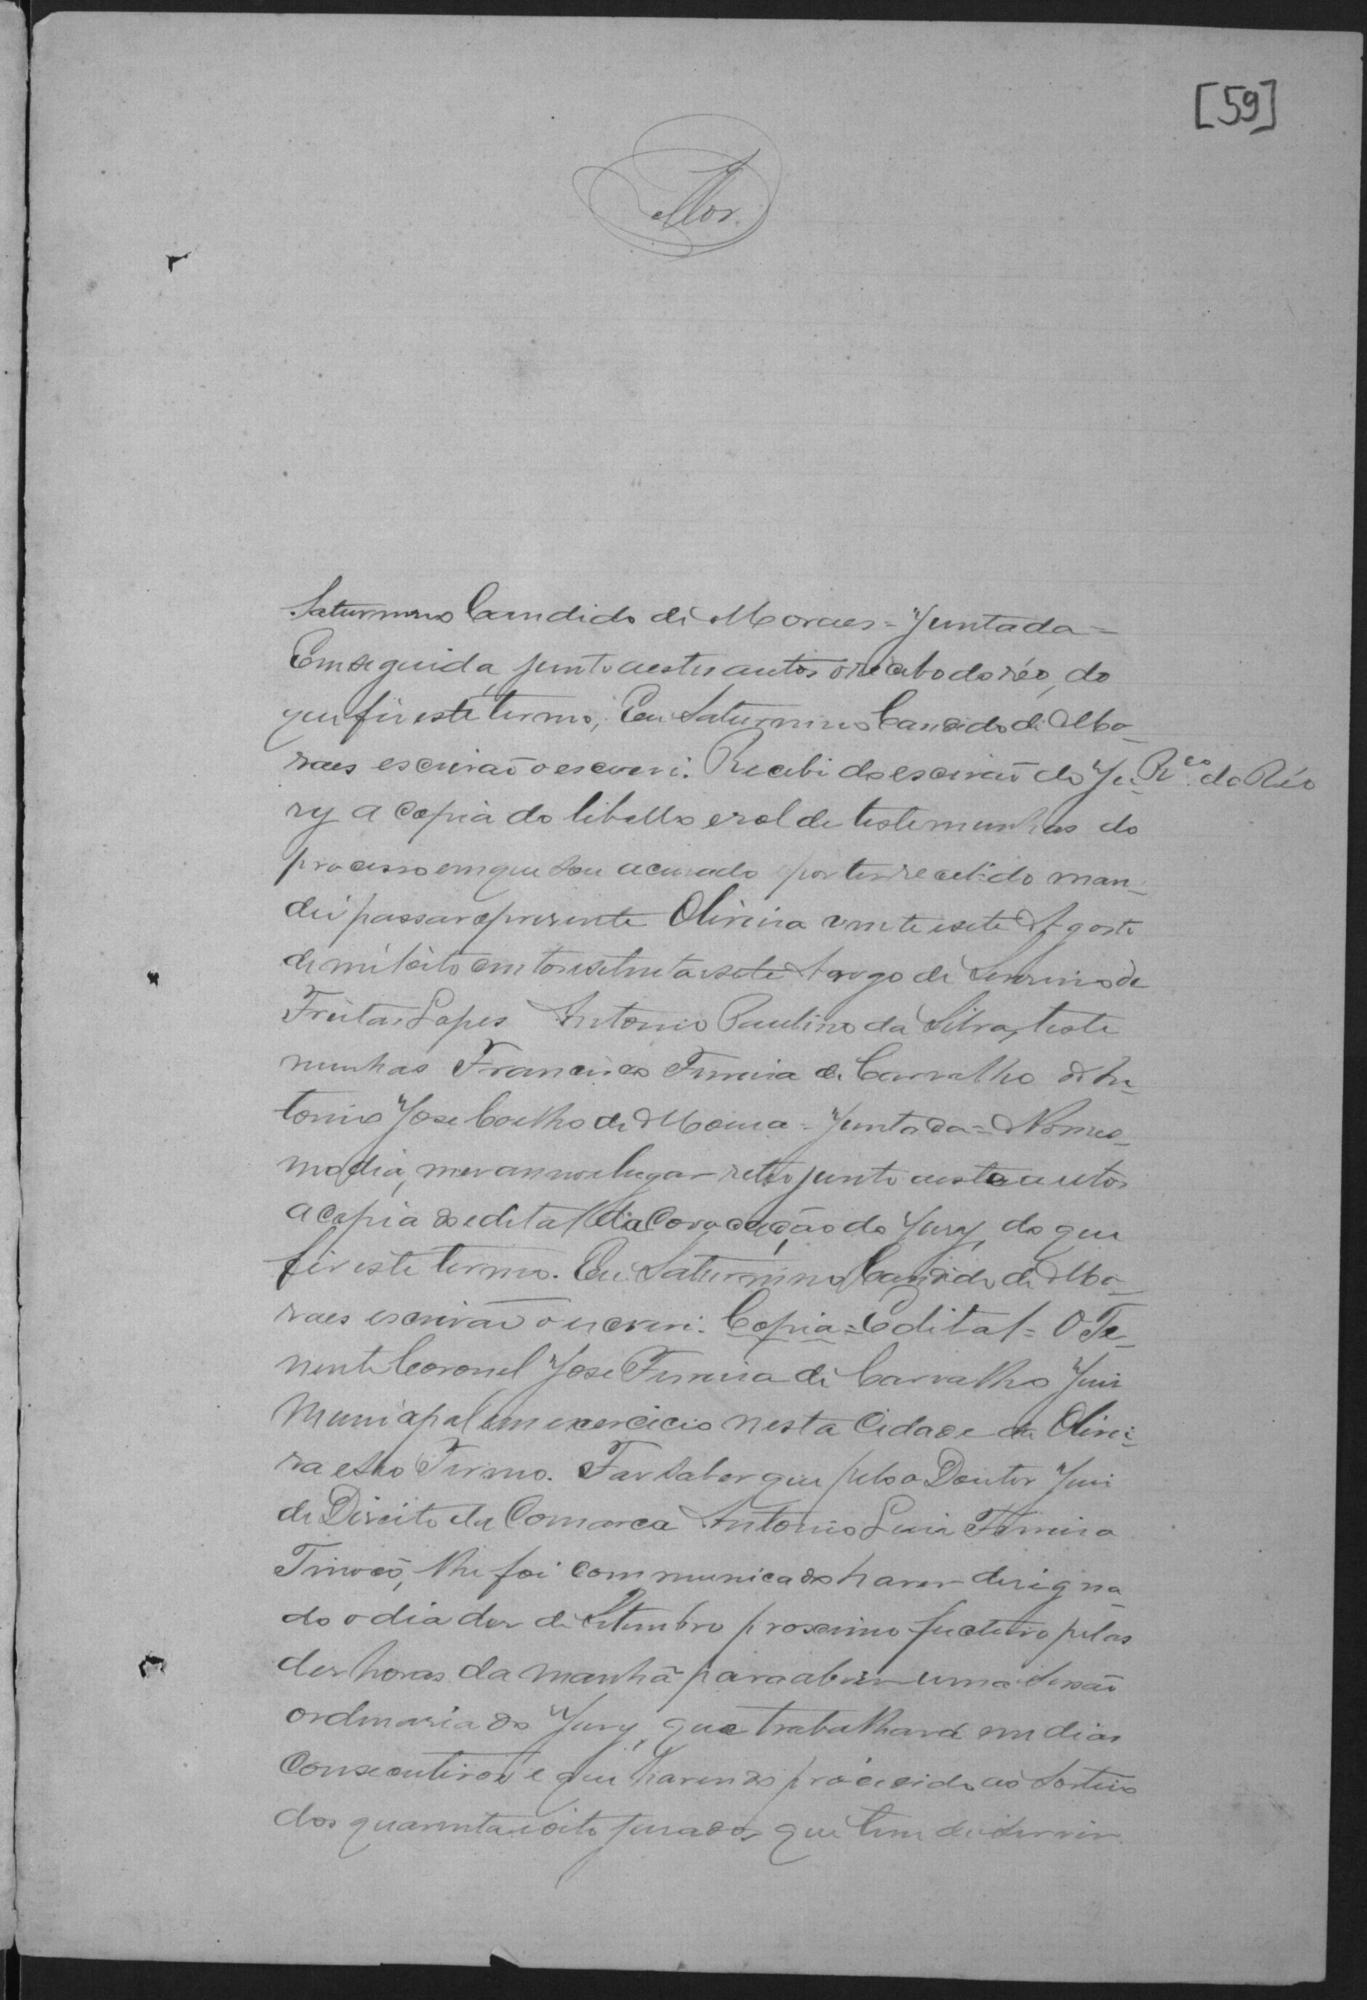 [59]
Mor.
Saturnino Candido de Moraes = Juntada =
Em seguida, junto a estes autos o recibo do réo, do
que fiz este termo; Eu Saturnino Candido de Mo-
raes escrivaõ o escrevi. Recebi do escrivaõ do Ju-
R.co do Réo
ry a copia do libello e rol de testemunhas do
processo em que sou accusado por ter recebido man-
dei passar o presente Oliveira vinte e sete de Agosto
de mil oito centos e setenta e sete A rogo de Severino de
Freitas Lopes Antonio Paulino da Silva, teste
munhas Francisco Ferreira de Carvalho An-
tonio José Coelho de Moura = Juntada = No mes-
mo dia, mez anno e lugar retro junto a estes autos
a copia do edital da Covocação do Jury, do que
fiz este termo. Eu Saturnino Candido de Mo-
raes escrivaõ o escrevi. Copia = Edital = O Te-
nente Coronel José Ferreira de Carvalho Juiz
Municipal em exercicio nesta Cidade de Olivei-
ra e seo Termo. Faz saber que pelo o Doutor Juiz
de Direito da Comarca Antonio Luiz Ferreira
Tinoco, lhe foi communicado haver designa-
do o dia dez de Setembro proximo fucturo pelas
dez horas da manhã para abrir uma Sessaõ
ordinaria do Jury, que trabalhará em dias
consecutivos e que havendo procedido ao Sorteio
dos quarenta e oito jurados que tem de servir